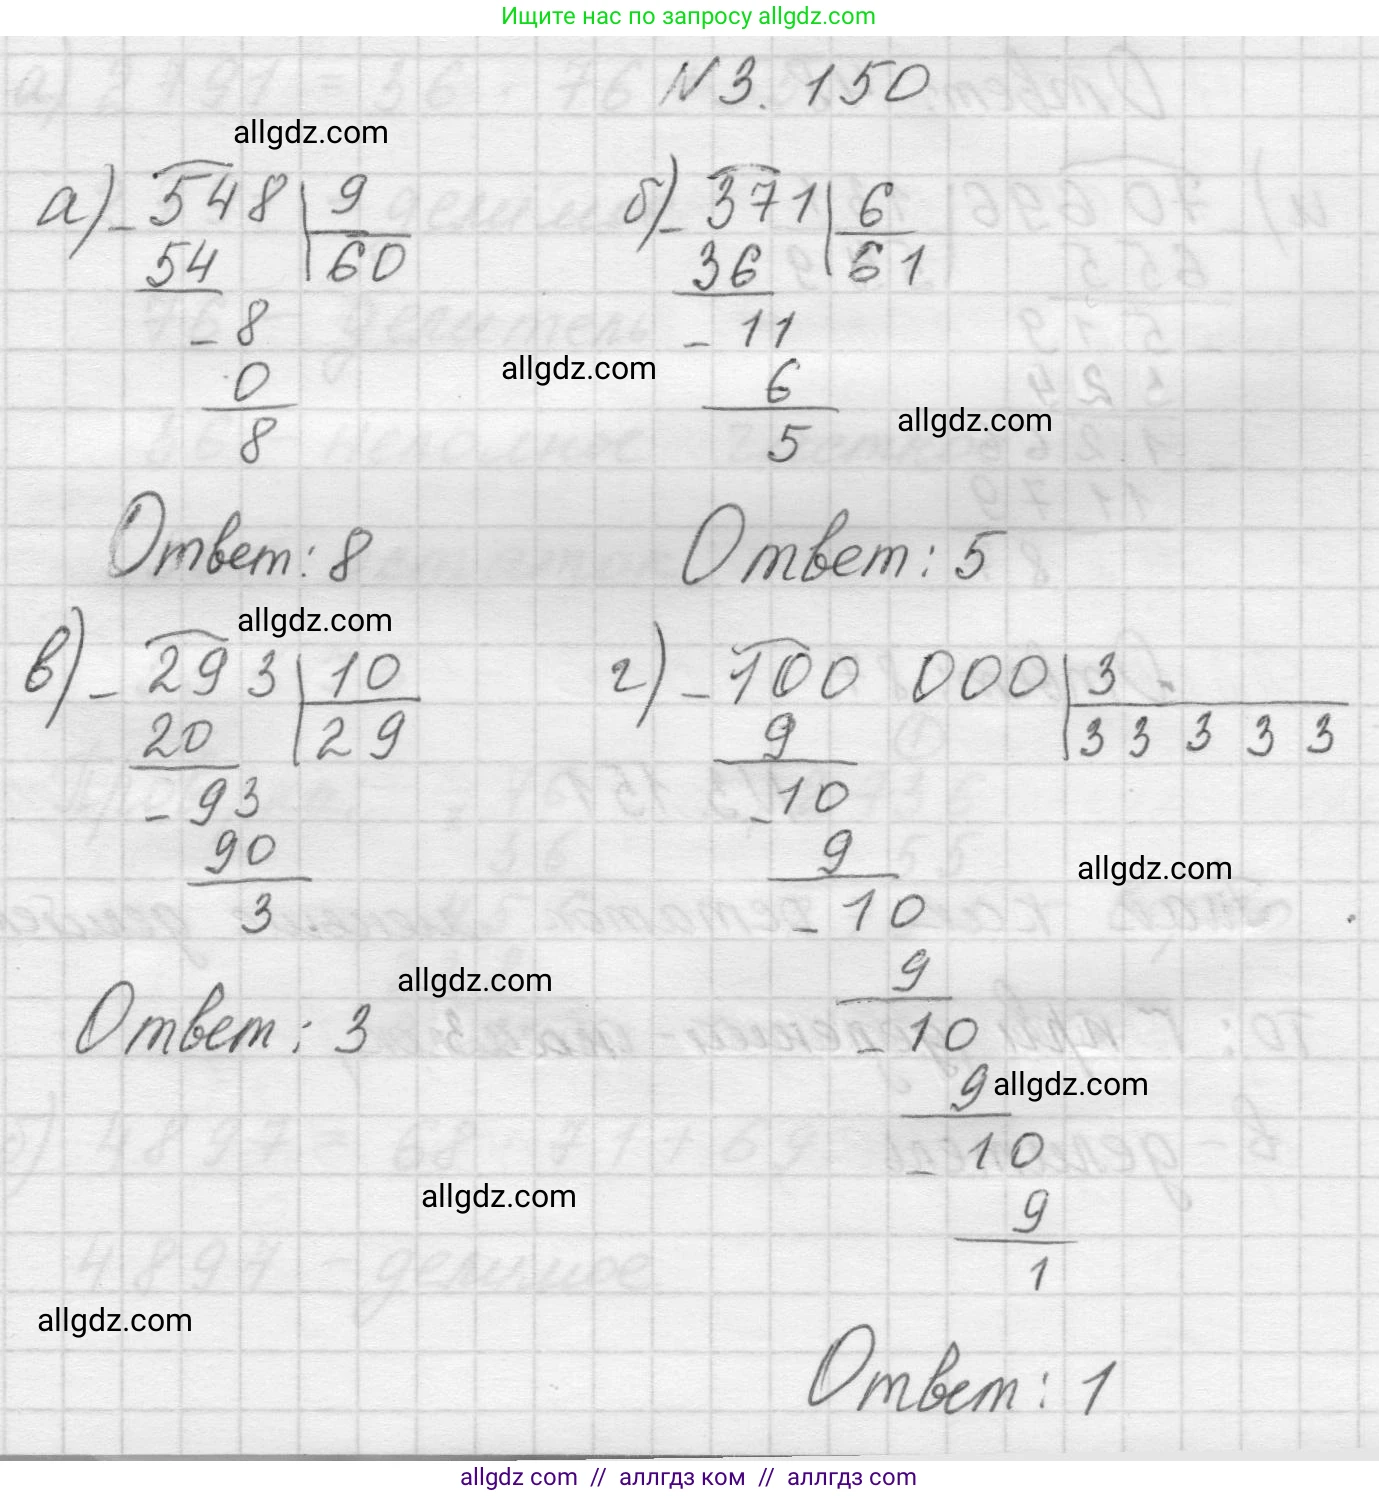 Ищите нас по запросу allgdz.com
N 3.150
allgdz.com
а) - 548 | 9
54 | 60
- 8
0
8
Ответ: 8
б) - 371 | 6
36 | 61
- 11
6
5
allgdz.com
allgdz.com
Ответ: 5
allgdz.com
в) - 293 | 10
20 | 29
- 93
90
3
allgdz.com
Ответ: 3
г) - 100 000 | 3
9 | 3 3 3 3 3
- 10
9
allgdz.com
- 10
9
- 10
9
allgdz.com
- 10
9
1
allgdz.com
allgdz.com
Ответ: 1
allgdz com // аллгдз ком // аллгдз com